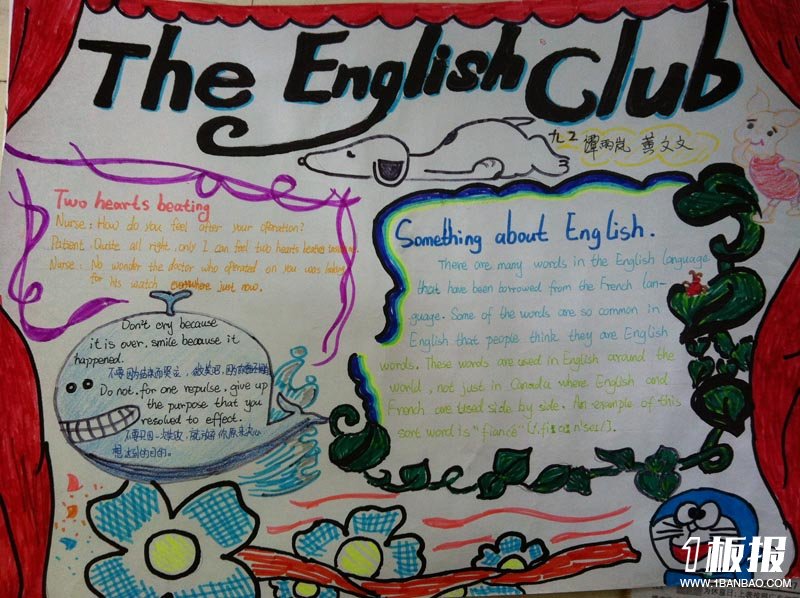 The English Club
九2 谭雨岚 黄文文
Two hearts beating
Nurse: How do you feel after your operation?
Patient: Quite all right, only I can feel two hearts beating
Nurse: No wonder the doctor who operated on you was looking
for his watch everywhere just now.
Don't cry because
it is over, smile because it
happened.
不要因为结束而哭泣,微笑吧,因为
Do not, for one repulse, give up
the purpose that you
resolved to effect.
不要只因一次失败,就放弃你原来决心
想达到的目的。
Something about English.
There are many words in the English language
that have been borrowed from the French lan-
guage. Some of the words are so common in
English that people think they are English
words. These words are used in English around the
world, not just in Canada where English and
French are used side by side. An example of this
sort word is "fiancé"
1板报
WWW.1BANBAO.COM